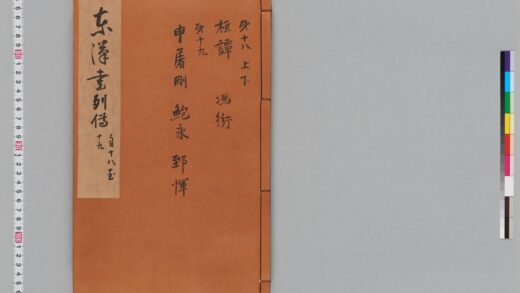 東漢書列傳 自十八至
十九
第十八 上下
桓譚 馮衍
第十九
申屠剛 鮑永 郅惲